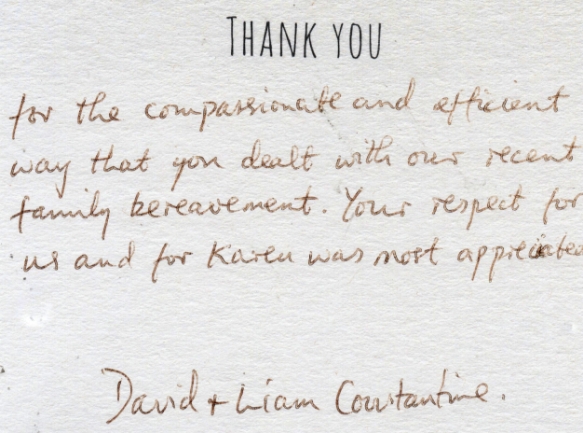 THANK YOU
for the compassionate and efficient
way that you dealt with our recent
family bereavement. Your respect for
us and for Karen was most appreciated
David + Liam Constantine.